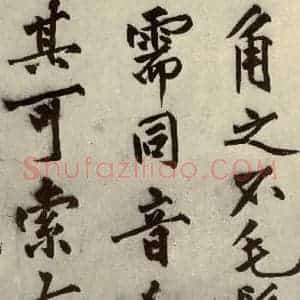 角之不毛
需同音
其可索
Shufaziliao.COM